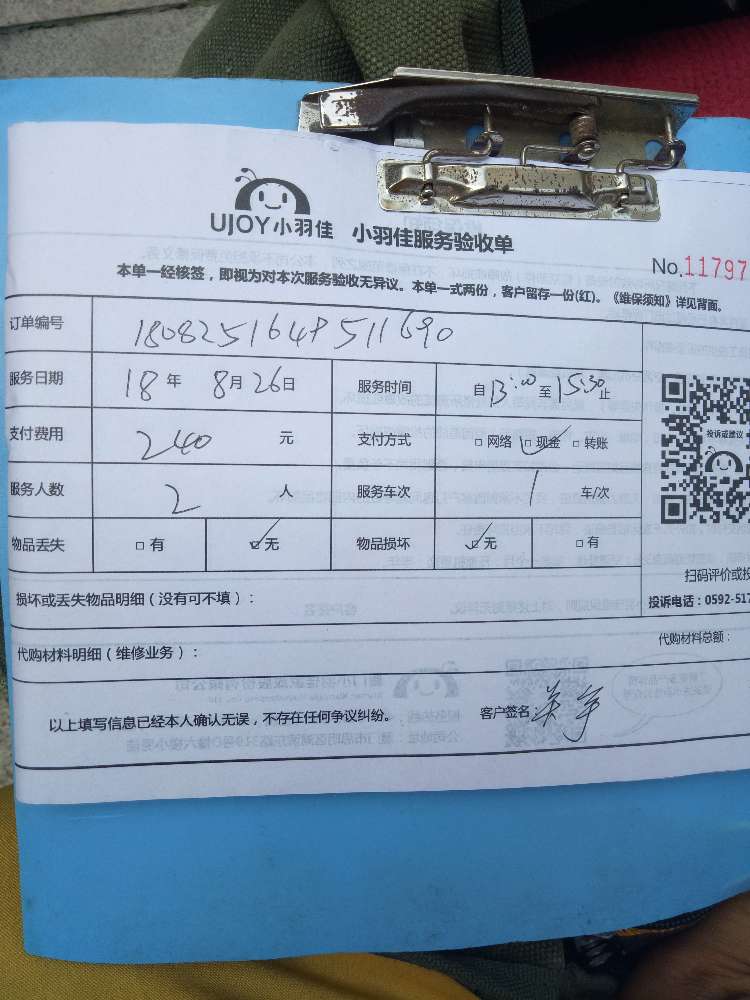 UJOY小羽佳 小羽佳服务验收单
No.11797
本单一经核签，即视为对本次服务验收无异议。本单一式两份，客户留存一份(红)。《维保须知》详见背面。
订单编号
服务日期 18年 8月26日 服务时间 自13:00至15:30止
支付费用 240 元 支付方式 □网络 ☑现金 □转账
投诉或建议
服务人数 2 人 服务车次 1 车/次
物品丢失 □有 ☑无 物品损坏 ☑无 □有
扫码评价或投
损坏或丢失物品明细（没有可不填）：
投诉电话：0592-517
代购材料明细（维修业务）：
代购材料总额：
以上填写信息已经本人确认无误，不存在任何争议纠纷。 客户签名：